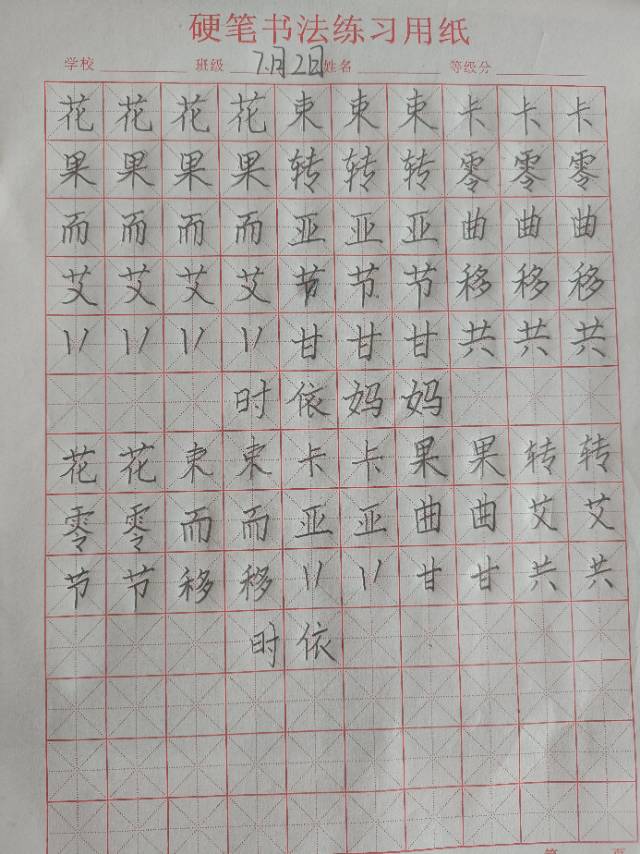 硬笔书法练习用纸
学校 班级 7月2日 姓名 等级分
花花花花束束束卡卡卡
果果果果转转转零零零
而而而而亚亚亚曲曲曲
艾艾艾艾节节节移移移
丷丷丷丷甘甘甘共共共
时依妈妈
花花束束卡卡果果转转
零零而而亚亚曲曲艾艾
节节移移丷丷甘甘共共
时依